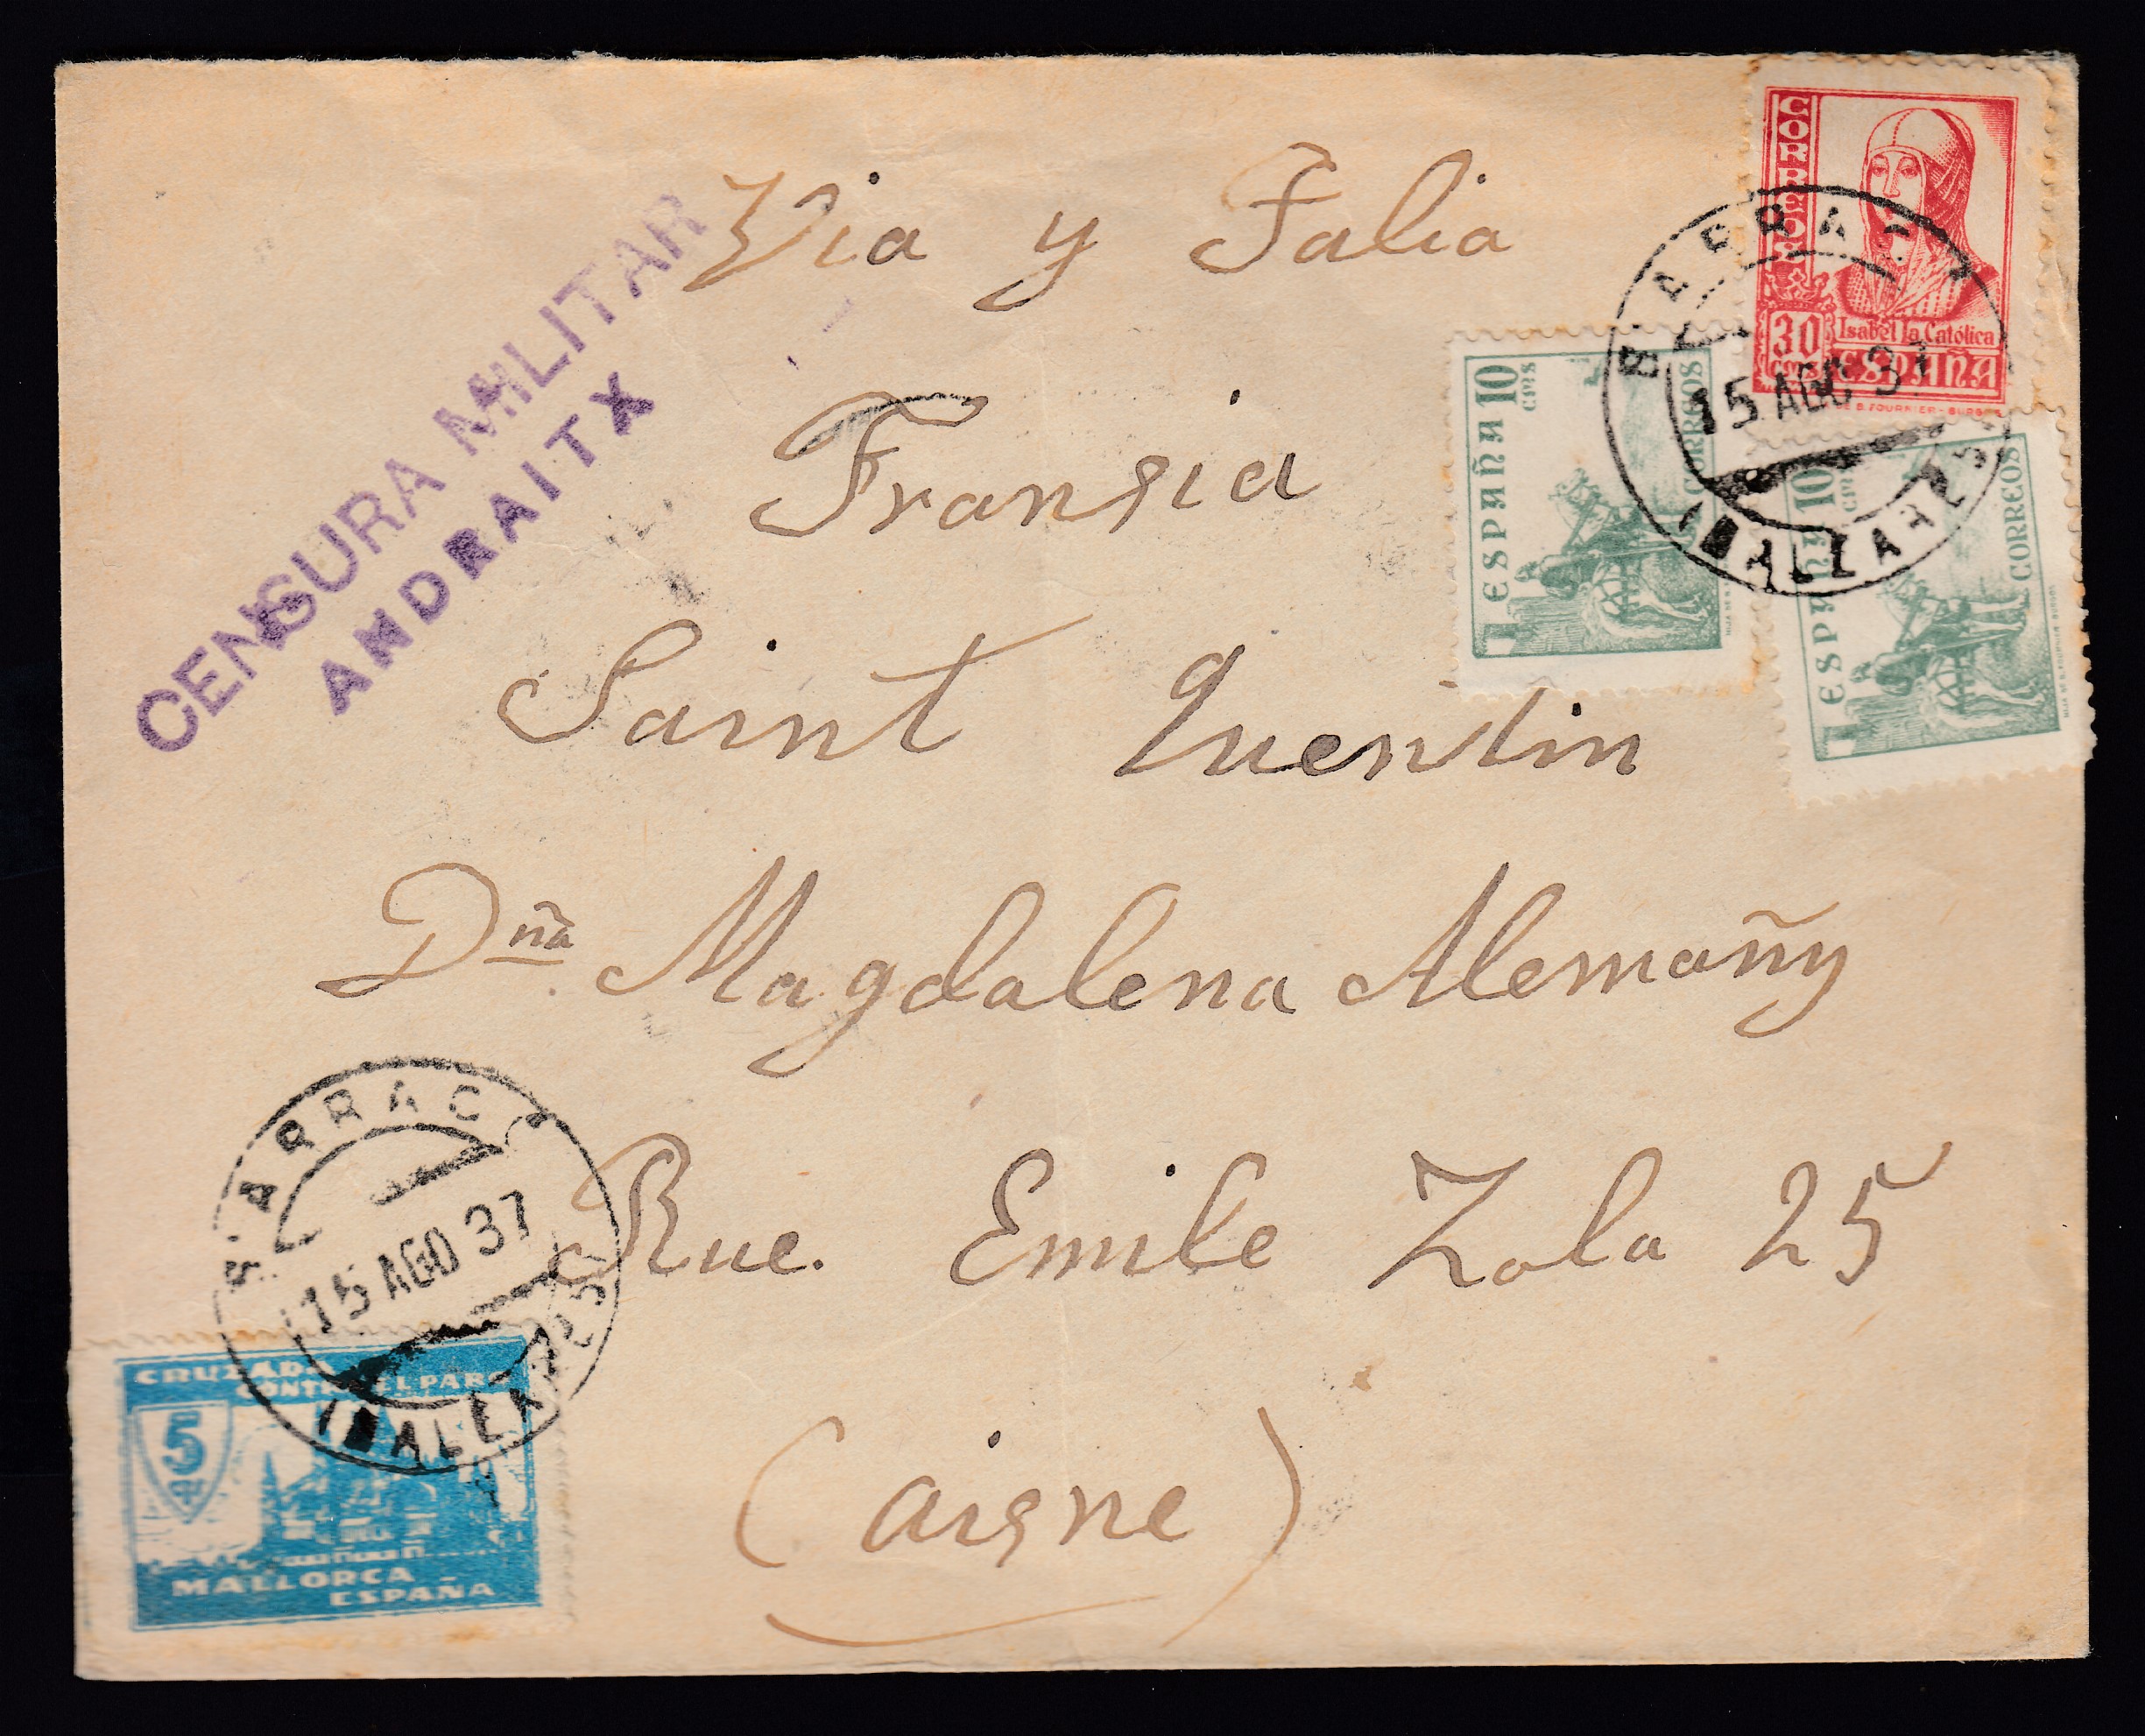 Via y Falia
CENSURA MILITAR
ANDRAITX
Fransia
Saint Quentin
Dña Magdalena Alemañy
Rue. Emile Zola 25
(aisne)
CORREOS
30 CMS
Isabel la Católica
ESPAÑA
B. FOURNIER - BURGOS
S'ARRACÓ
15 AGO 37
(BALEARES)
ESPAÑA 10 CMS
CORREOS
ESPAÑA 10 CMS
CORREOS
S'ARRACÓ
15 AGO 37
(BALEARES)
CRUZADA
CONTRA EL PARO
5
MALLORCA
ESPAÑA